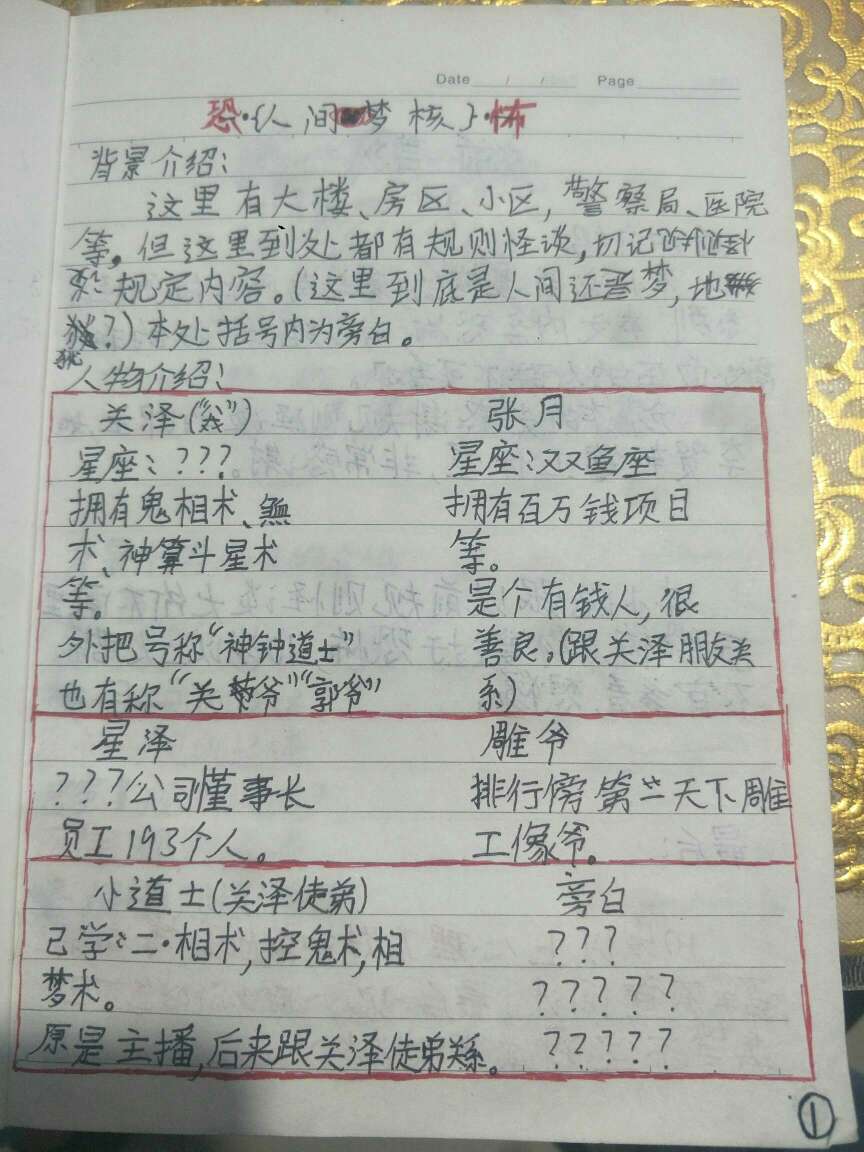 Date / / Page
恐·{人间梦核}·怖
背景介绍:
这里有大楼、房区、小区,警察局、医院
等,但这里到处都有规则怪谈,切记
规定内容。(这里到底是人间还是梦,地
狱?)本处括号内为旁白。
人物介绍:
关泽("我") 张月
星座:??? 星座:双鱼座
拥有鬼相术、 拥有百万钱项目
术、神算斗星术 等。
等。 是个有钱人,很
外把号称"神钟道士" 善良。(跟关泽朋友关
也有称"关爷""郭爷" 系)
星泽 雕爷
???公司懂事长 排行傍第二天下雕
员工193个人。 工像爷。
小道士(关泽徒弟) 旁白
已学:二·相术,控鬼术,相 ???
梦术。 ?????
原是主播,后来跟关泽徒弟关系。 ?????
①